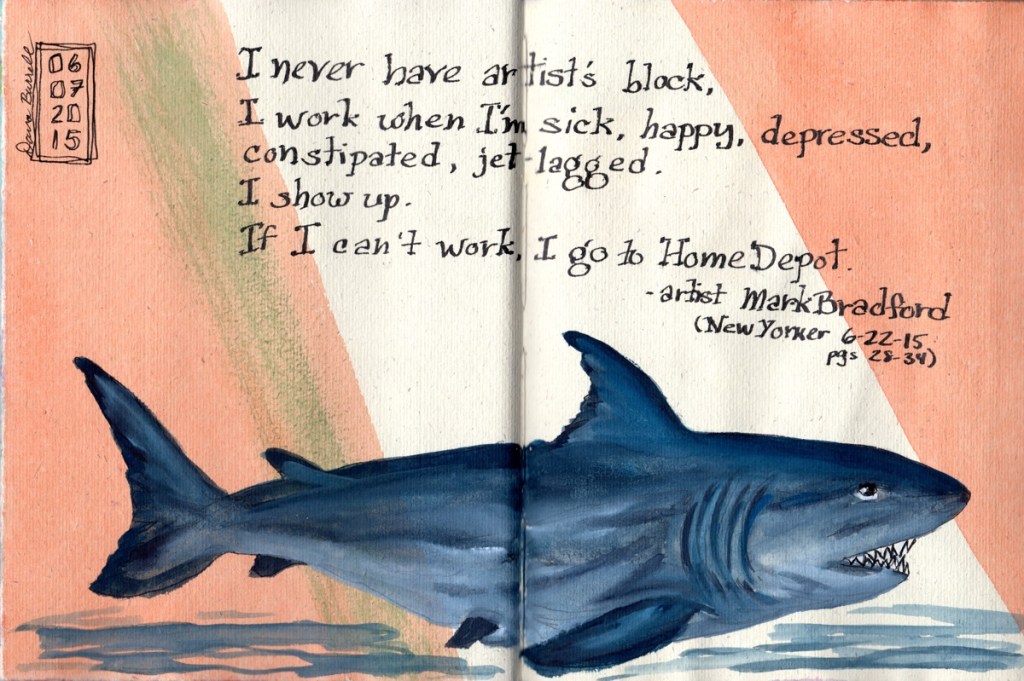 Dana Burrell
06
07
20
15
I never have artist's block,
I work when I'm sick, happy, depressed,
constipated, jet-lagged.
I show up.
If I can't work, I go to Home Depot.
-artist Mark Bradford
(New Yorker 6-22-15
pgs 28-34)